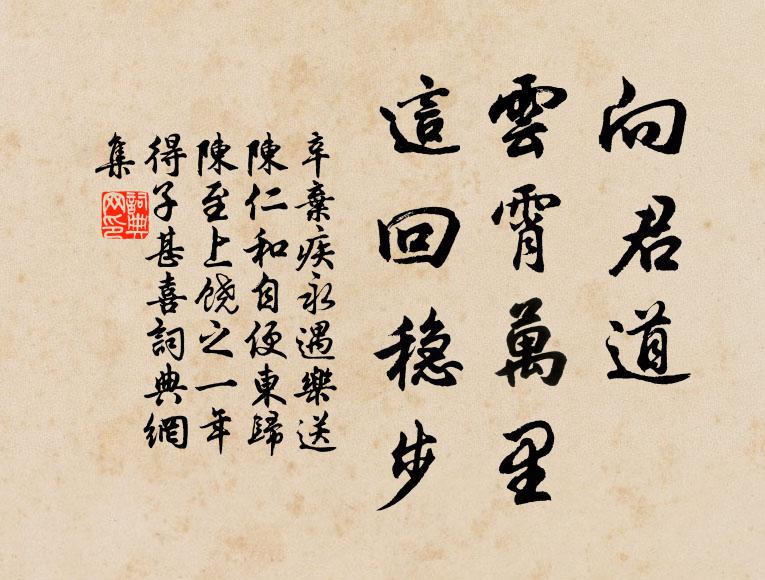 向君道
雲霄萬里
這回穏步
辛棄疾永遇樂送
陳仁和自便東歸
陳至上饒之一年
得子甚喜詞典網
集
詞典
网印